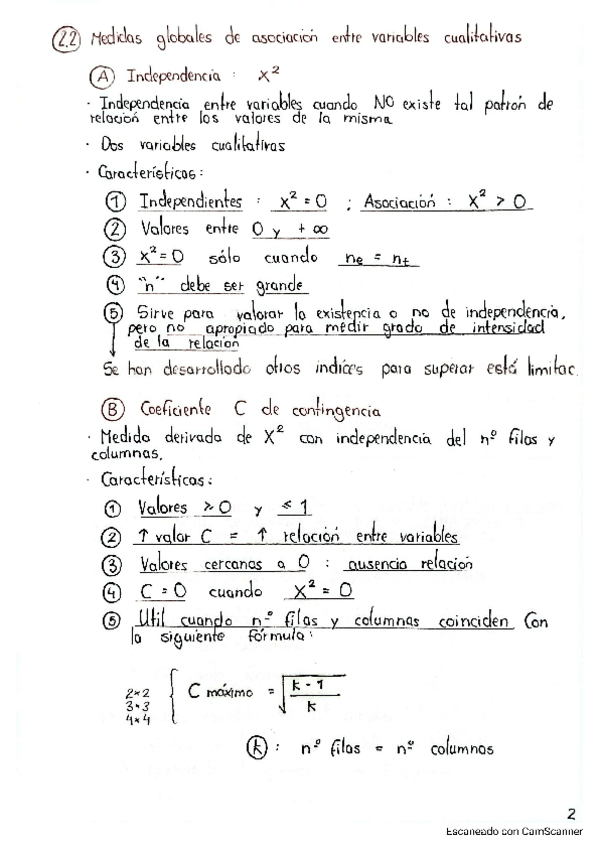 2.2 Medidas globales de asociación entre variables cualitativas
A Independencia : X²
· Independencia entre variables cuando NO existe tal patrón de
relación entre los valores de la misma
· Dos variables cualitativas
· Características:
1 Independientes : X² = 0 ; Asociación : X² > 0
2 Valores entre 0 y + ∞
3 X² = 0 sólo cuando ne = nt
4 "n" debe ser grande
5 Sirve para valorar la existencia o no de independencia,
pero no apropiado para medir grado de intensidad
de la relación
Se han desarrollado otros indices para superar está limitac.
B Coeficiente C de contingencia
· Medida derivada de X² con independencia del nº filas y
columnas.
· Características:
1 Valores ≥ 0 y ≤ 1
2 ↑ valor C = ↑ relación entre variables
3 Valores cercanos a 0 : ausencia relación
4 C = 0 cuando X² = 0
5 Util cuando nº filas y columnas coinciden con
la siguiente fórmula:
2×2
3×3
4×4
{ C máximo = √((k - 1)/k)
k : nº filas = nº columnas
2
Escaneado con CamScanner